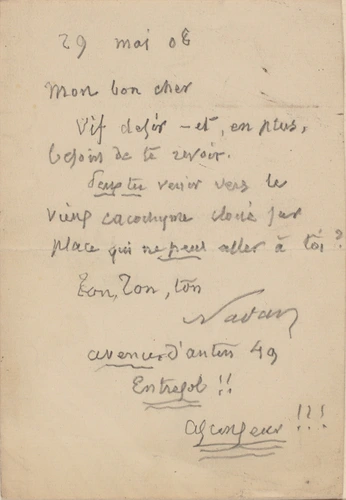 29 mai 08
Mon bon cher
Vif desir – et, en plus,
besoin de te revoir.
Peux tu venir vers le
vieux cacochyme cloué sur
place qui ne peut aller à toi ?
Ton, Ton, ton
Nadar
avenue d'antin 49
Entresol !!
Ascenseur !!!